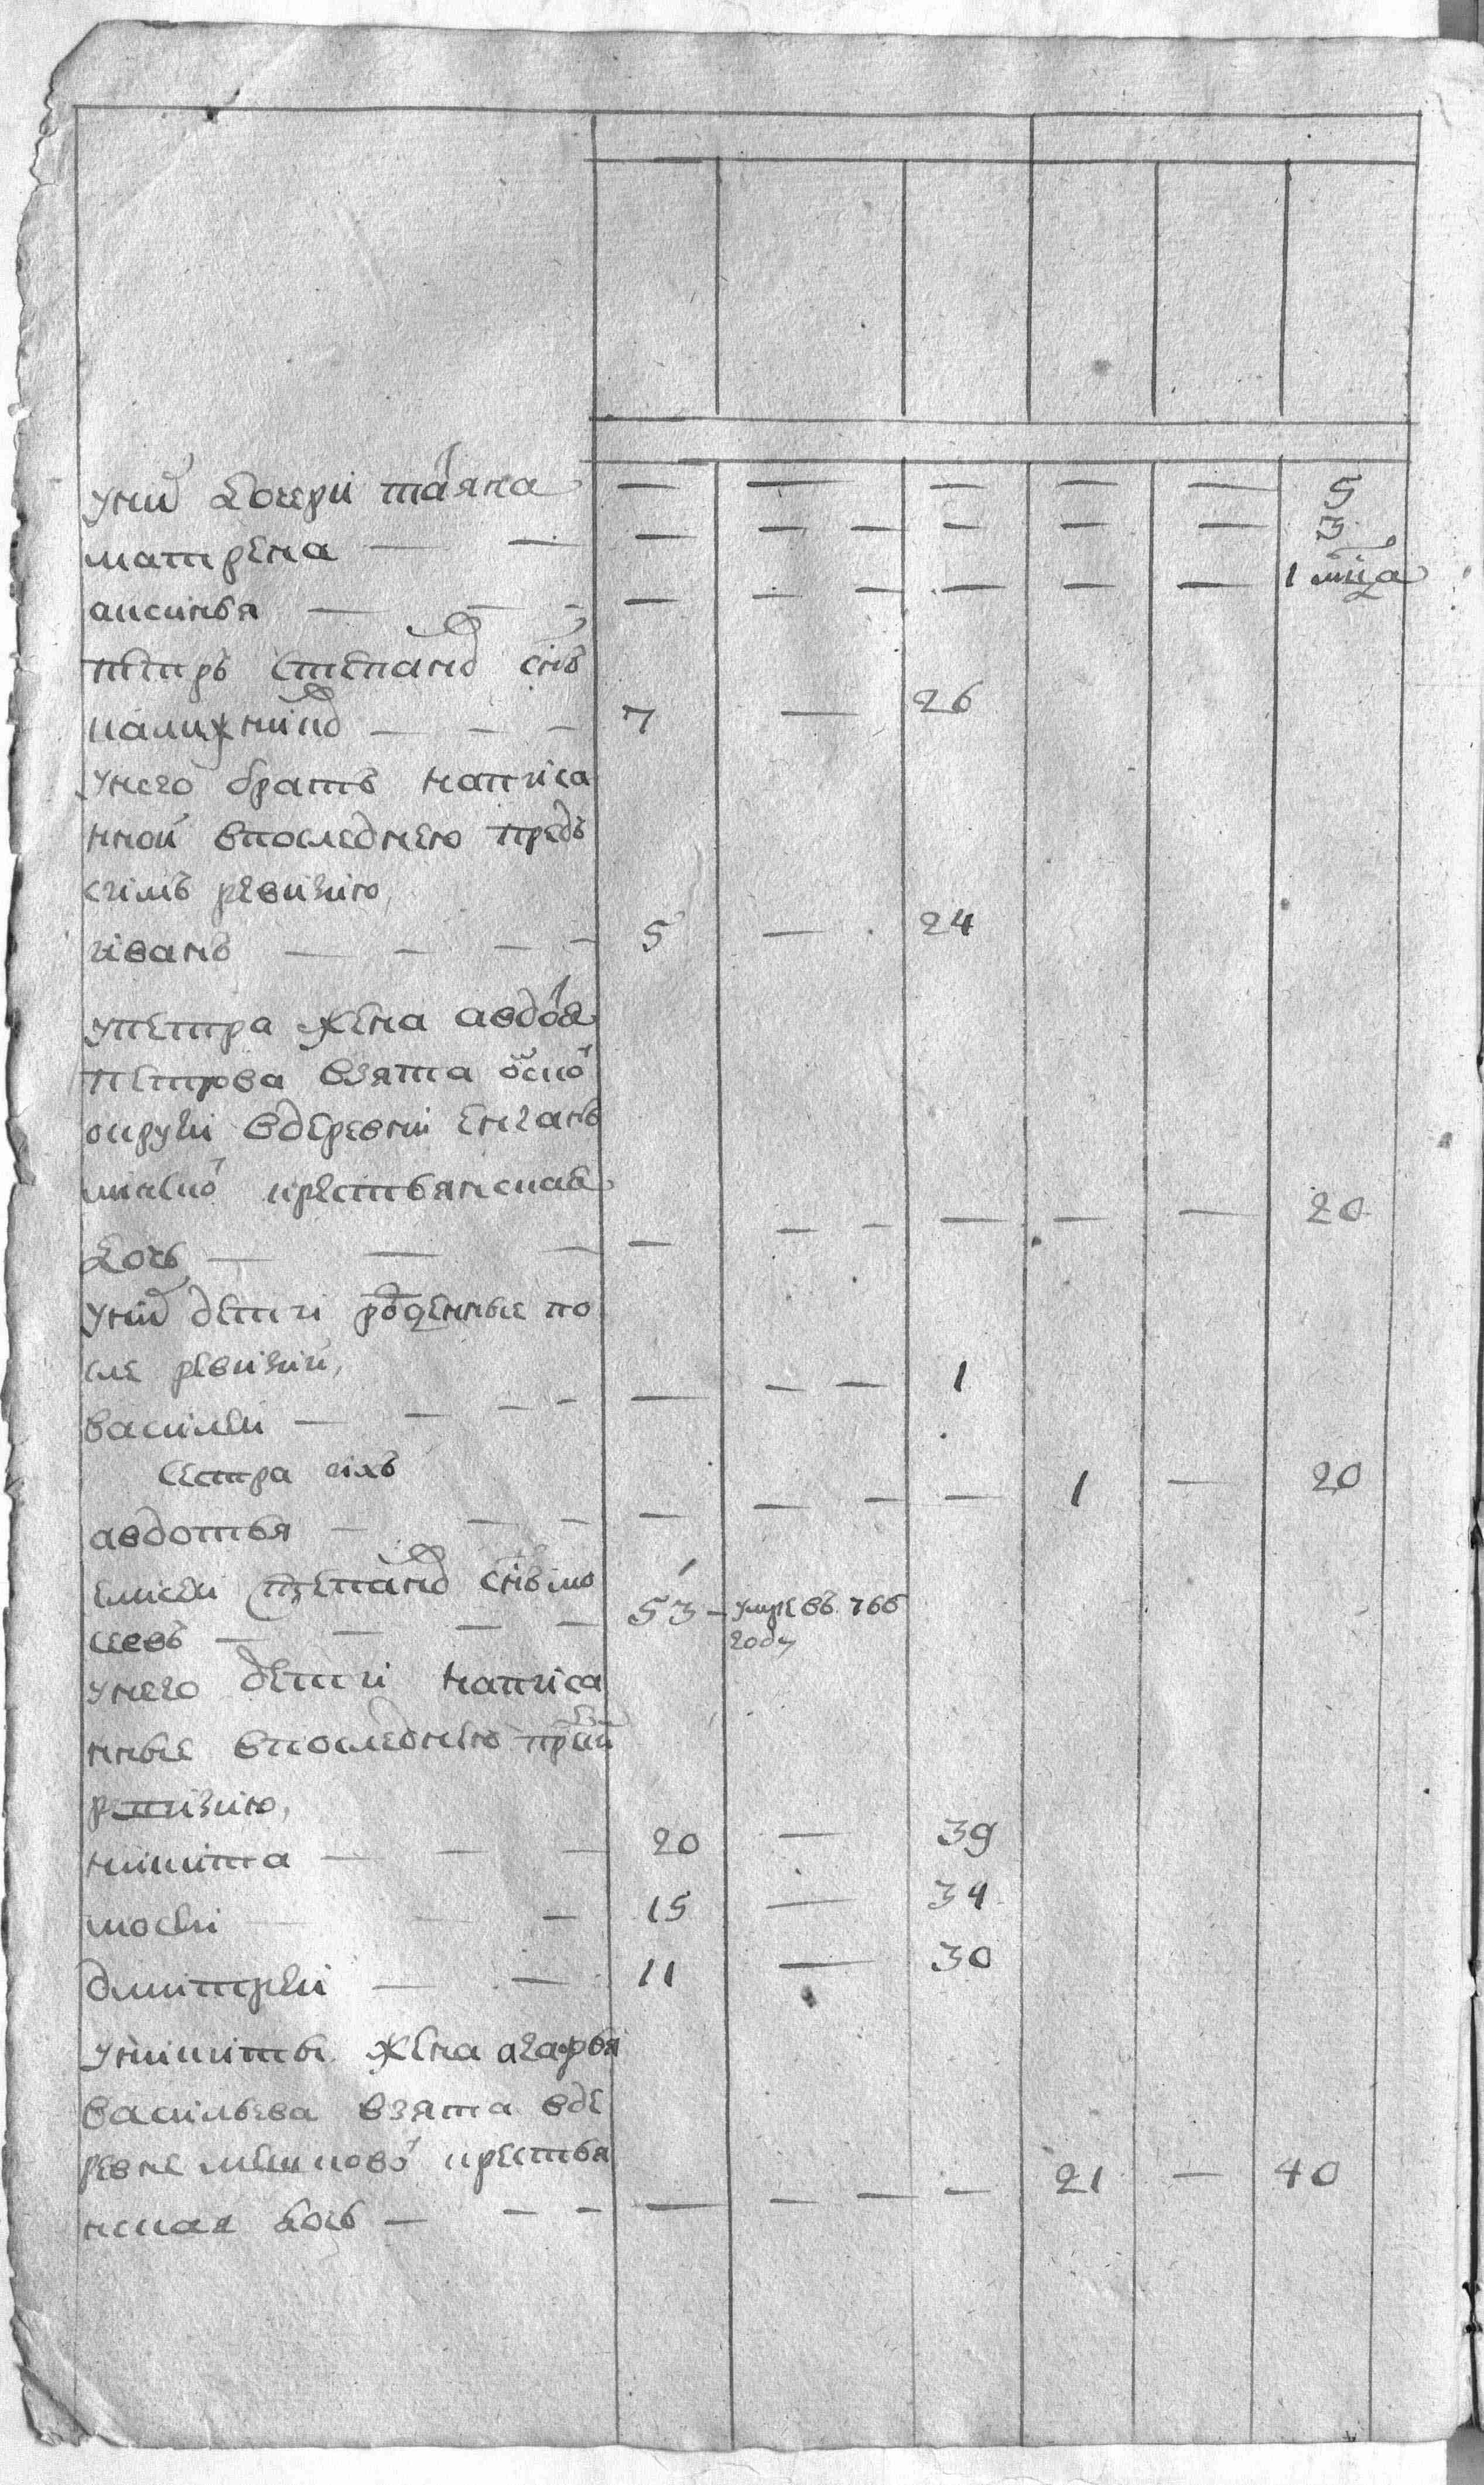 у ни дочери таяна — — — — — 5
матрена — — — — — — — — 3
аксинья — — — — — — — — 1 мца
петръ степано снъ
— — — 7 — 26
у него братъ написа
нной в последнею предъ
симъ ревизию,
иванъ — — — — 5 — 24
у петра жена авдо
петрова взята
округи в деревни
крестьянская
дочь — — — — — — — — — 20
у ни дети рожденные по
сле ревизии,
василеи — — — — — — — 1
сестра ихъ
авдотья — — — — — — — 1 — 20
елисеи степано снъ мо
сеевъ — — — — 53 — умре въ 766
году
у него дети написа
нные в последнею
ревизию,
никита — — — 20 — 39
мосеи — — — 15 — 34
дмитреи — — 11 — 30
у никиты жена агафья
васильева взята в де
ревне крестья
нская дочь — — — — — — — 21 — 40